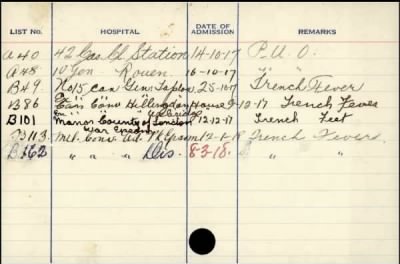 LIST No. HOSPITAL DATE OF ADMISSION REMARKS
A40 42 Cas. Cl Station 14-10-17 P.U.O.
A48 10 Gen Rouen 16-10-17 " "
B49 No 15 Can Gen. Taplow 25-10-17 Trench Fever
B86 Can Conv Hillingdon House 9-12-17 Trench Fever
Uxbridge
B101 Manor County of London 12-12-17 Trench Feet
War Epsom
B113 Mil. Conv. Epsom 12-1-18 Trench Fever
B162 " " " Dis. 8-3-18. " "